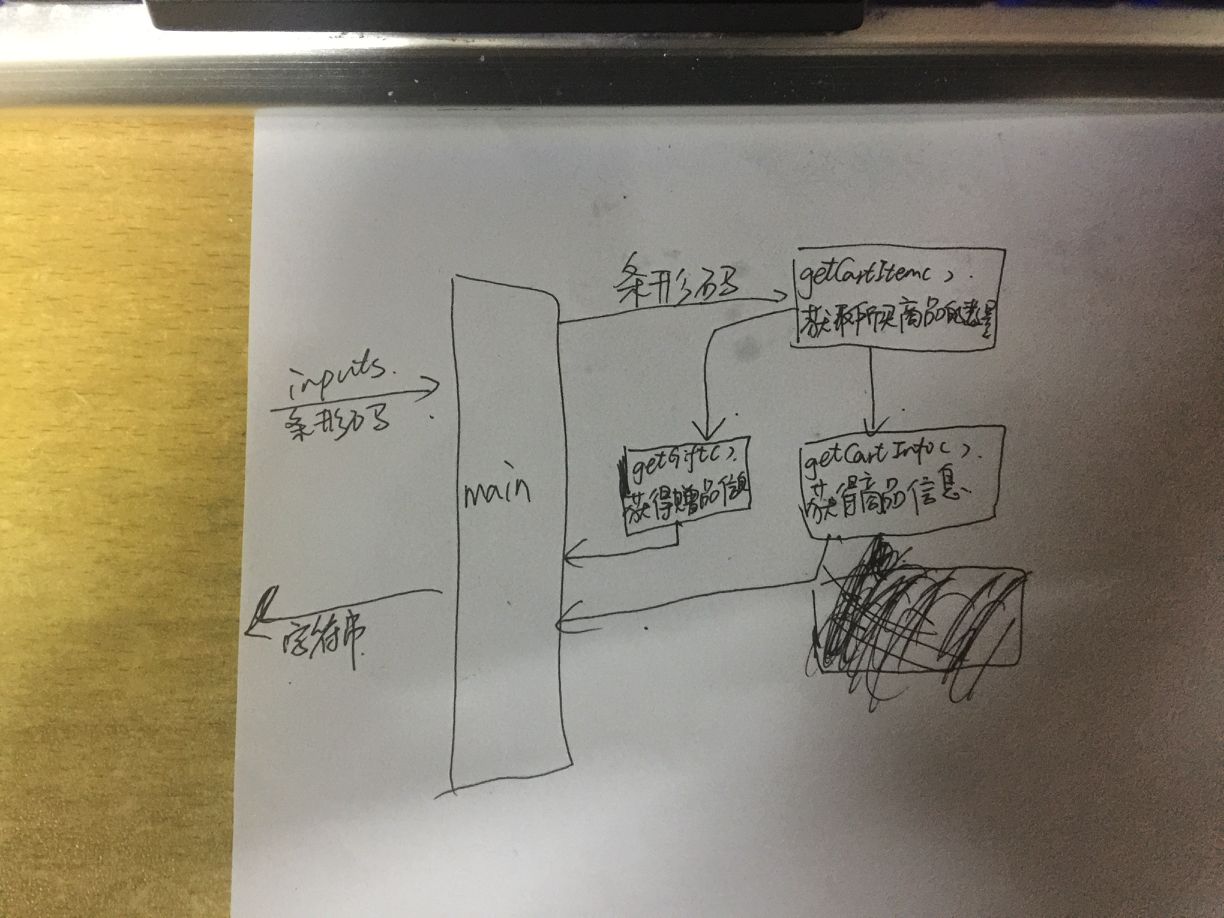 inputs.
条形码
字符串
main
条形码
getCartItem().
获取所买商品的数量
getGift().
获得赠品信息
getCartInfo().
获得商品信息